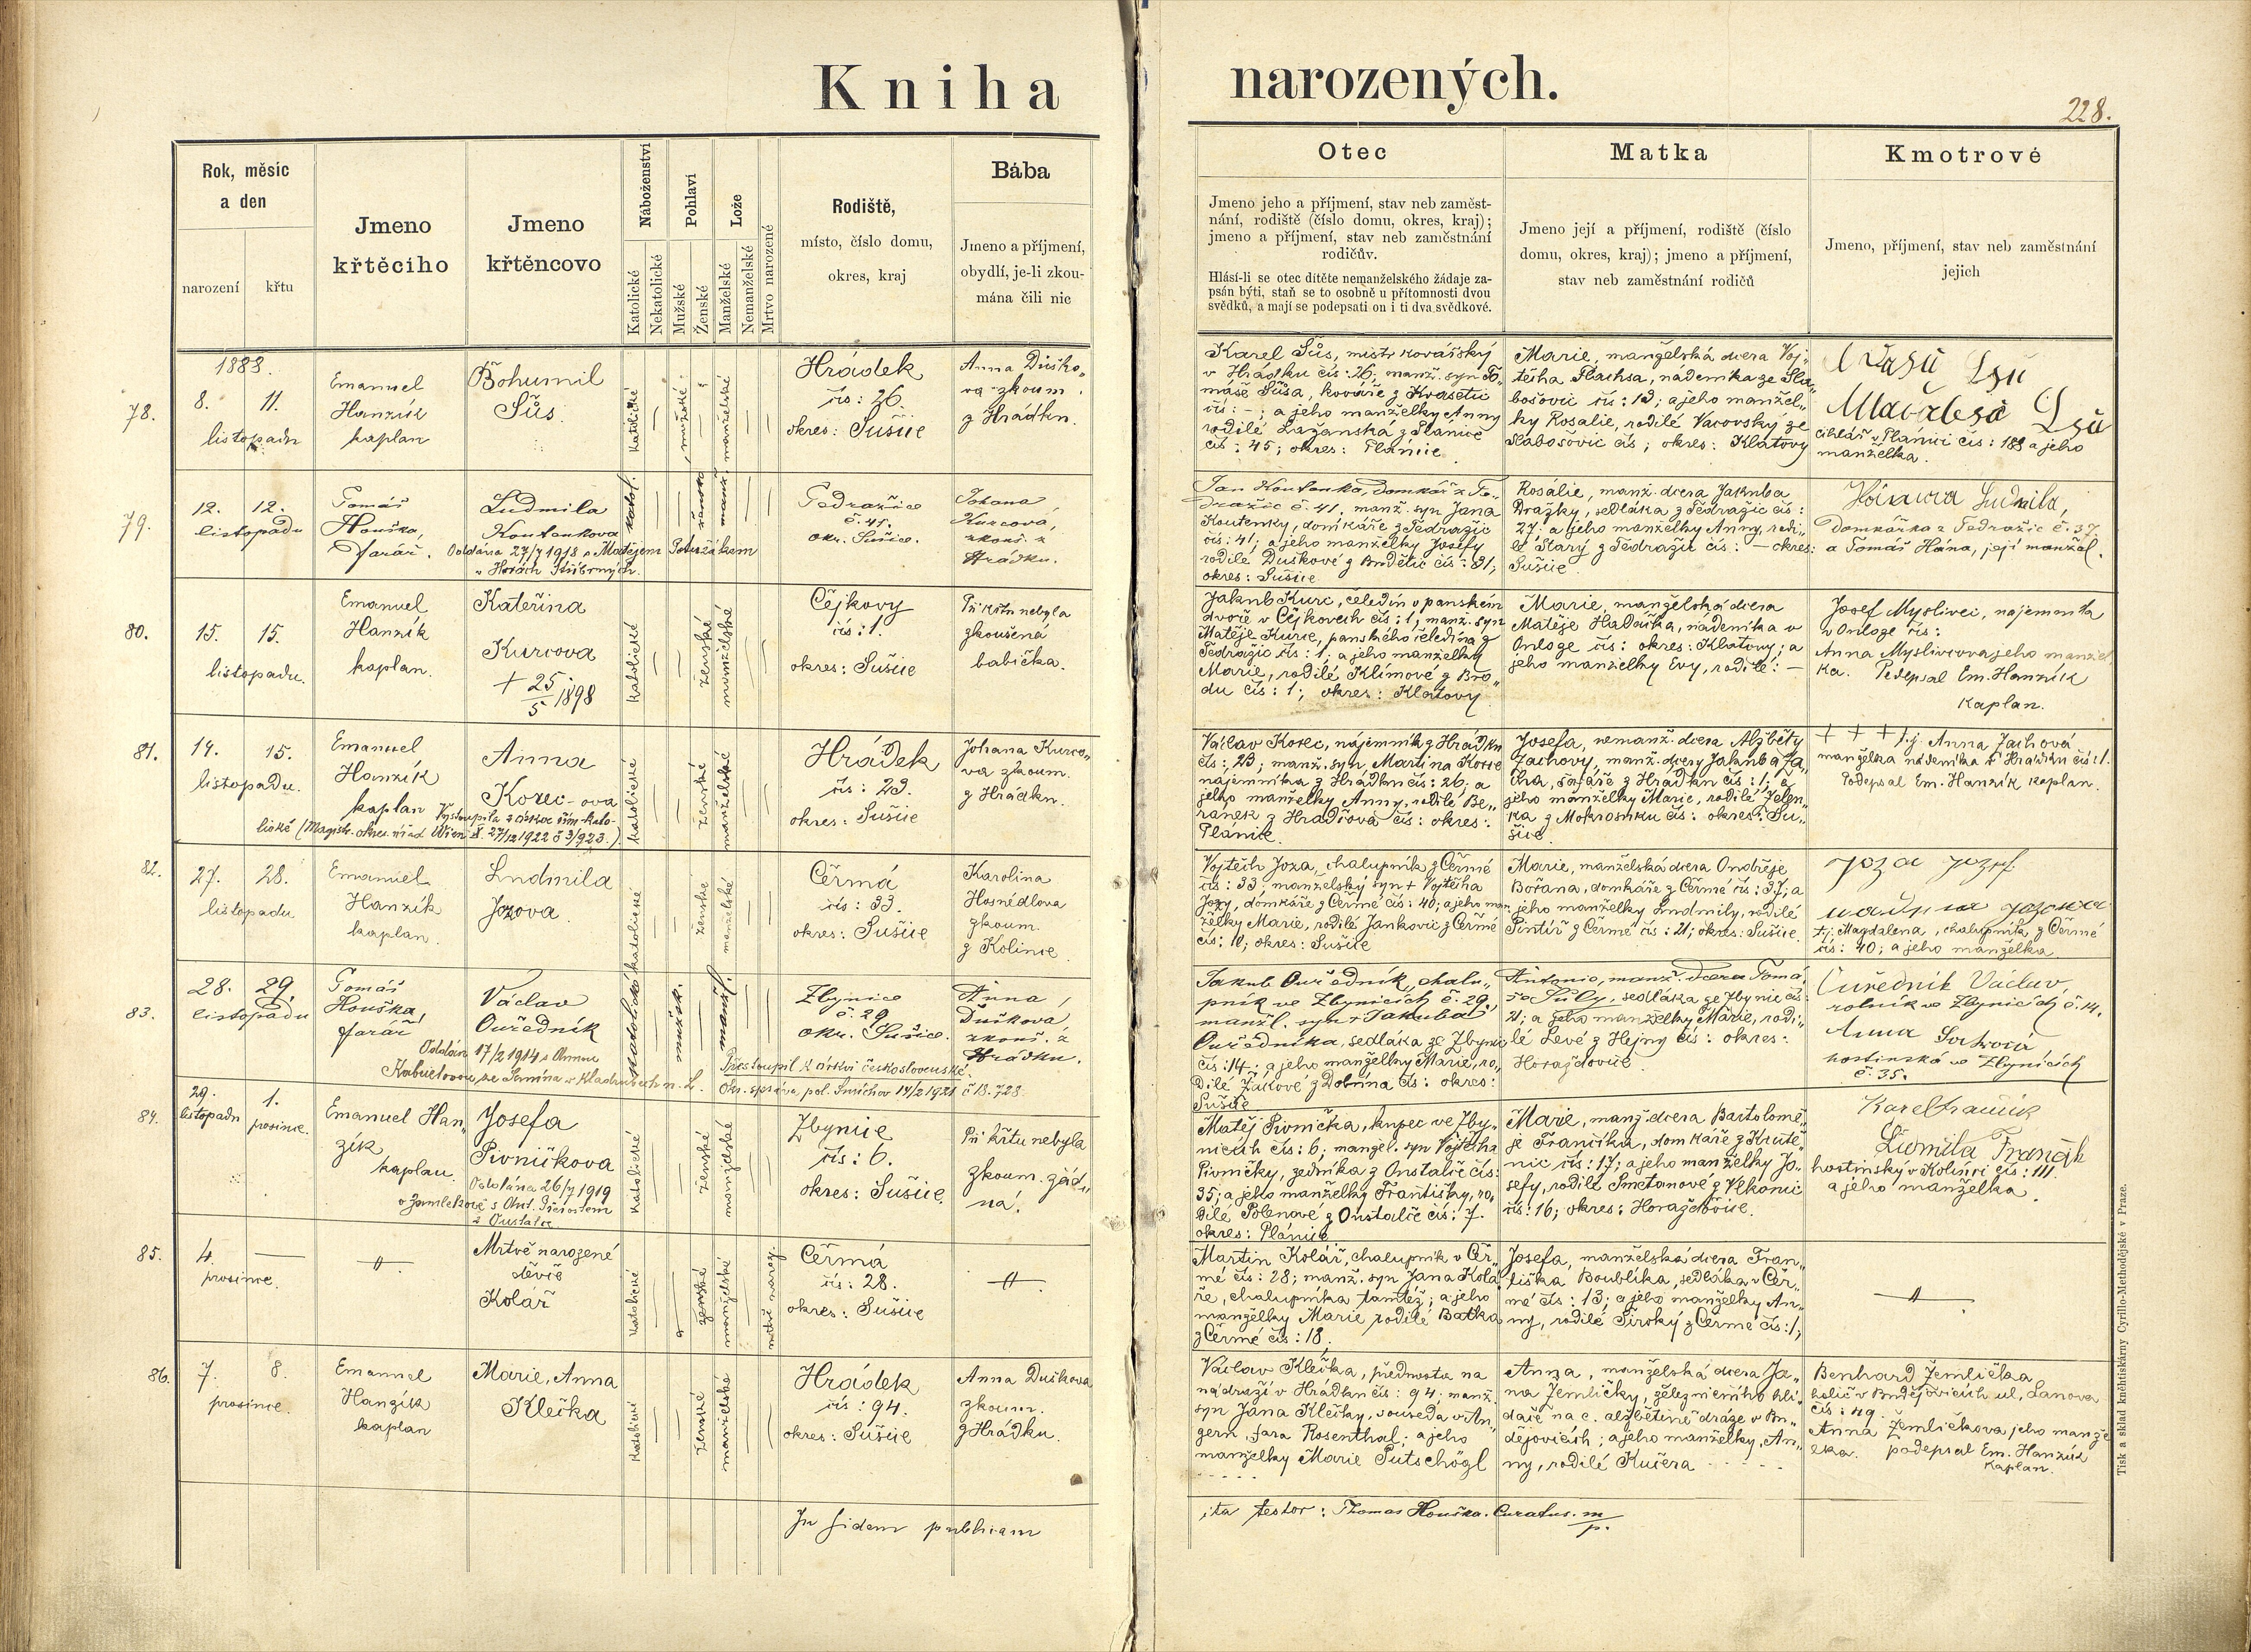 Kniha narozených.
228.
Rok, měsíc
a den
narození
křtu
Jmeno
křtěcího
Jmeno
křtěncovo
Náboženství
Katolické
Nekatolické
Pohlaví
Mužské
Ženské
Lože
Manželské
Nemanželské
Mrtvo narozené
Rodiště,
místo, číslo domu,
okres, kraj
Bába
Jmeno a příjmení,
obydlí, je-li zkou-
mána čili nic
Otec
Jmeno jeho a příjmení, stav neb zaměst-
nání, rodiště (číslo domu, okres, kraj);
jmeno a příjmení, stav neb zaměstnání
rodičův.
Hlásí-li se otec dítěte nemanželského žádaje za-
psán býti, staň se to osobně u přítomnosti dvou
svědků, a mají se podepsati on i ti dva svědkové.
Matka
Jmeno její a příjmení, rodiště (číslo
domu, okres, kraj); jmeno a příjmení,
stav neb zaměstnání rodičů
Kmotrové
Jmeno, příjmení, stav neb zaměstnání
jejich
1883.
78.
8. 11.
listopadu
Emanuel
Hanzík
kaplan
Bohumil
Sůs
katolické
mužské
manželské
Hrádek
čís: 26.
okres: Sušice
Anna Duško„
va zkoum.
z Hrádku.
Karel Sůs, mistr kovářský
v Hrádku čís: 26. manž. syn To„
máše Sůsa, kováře z Kvasetic
čís: –; a jeho manželky Anny
rodilé Lažanská z Plánice
čís: 45; okres: Plánice
Marie, manželská dcera Voj„
těcha Flachsa, nádeníka ze Sla„
bošovic čís: 13; a jeho manžel„
ky Rosalie, rodilé Vacovský ze
Slabošovic čís; okres: Klatovy
cihlář v Plánici čís: 188 a jeho
manželka.
79.
12. 12.
listopadu
Tomáš
Houška,
farář.
Ludmila
Koutenkova
Oddána 27/7 1918 s Matějem Potužákem
v Horách Stříbrných.
katol.
ženské
manž.
Tedražice
č. 41.
okr. Sušice.
Johana
Kurcová,
zkouš. z
Hrádku.
Jan Koutenka, domkář z Te„
dražic č. 41, manž. syn Jana
Koutenky, domkáře z Tedražic
čís: 41; a jeho manželky Josefy
rodilé Duškové z Brdětic čís: 31;
okres: Sušice
Rosalie, manž. dcera Jakuba
Dražky, sedláka z Tedražic čís:
27; a jeho manželky Anny, rodi„
lé Starý z Tedražic čís: – okres:
Sušice
Ludmila,
domkářka z Tedražic č. 37.
a Tomáš Hána, její manžel.
80.
15. 15.
listopadu.
Emanuel
Hanzík
kaplan.
Kateřina
Kurcova
+ 25/5 1898
katolické
ženské
manželské
Čejkovy
čís: 1.
okres: Sušice
Při křtu nebyla
zkoušená
babička.
Jakub Kurc, čeledín v panském
dvoře v Čejkovech čís: 1, manž. syn
Matěje Kurce, panského čeledína z
Tedražic čís: 1. a jeho manželky
Marie, rodilé Klímové z Bro„
du čís: 1; okres: Klatovy
Marie, manželská dcera
Matěje Hadačka, nádeníka v
Onloge čís: okres: Klatovy; a
jeho manželky Evy, rodilé: –
Josef Myslivec, najemník
v Onloge čís:
Anna Myslivcova jeho manžel
ka. Podepsal Em. Hanzík
Kaplan.
81.
14. 15.
listopadu.
Emanuel
Hanzík
kaplan
Anna
Korec-ova
Vystoupila z církve řím-kato-
lické (Magistr. okres. úřad Wien X. 27/12 1922 č 3/923.)
katolické
ženské
manželské
Hrádek
čís: 23.
okres: Sušice
Johana Kurco„
va zkoum.
z Hrádku.
Václav Korec, nájemník z Hrádku
čís: 23; manž. syn Martina Korce
nájemníka z Hrádku čís: 26; a
jeho manželky Anny, rodilé Be„
ranek z Hradčova čís: okres:
Plánice.
Josefa, nemanž. dcera Alžběty
Zachovy, manž. dcery Jakuba Za„
cha, šafáře z Hrádku čís: 1; a
jeho manželky Marie, rodilé Jelen„
ka z Mokrosuku čís: okres: Su„
šice
+ + + t.j. Anna Zachová
manželka nádeníka z Hrádku čís: 1.
Podepsal Em. Hanzík kaplan.
82.
27. 28.
listopadu
Emanuel
Hanzík
kaplan.
Ludmila
Jozova.
katolické
ženské
manželské
Čermá
čís: 33.
okres: Sušice
Karolina
Hosnédlova
zkoum.
z Kolince.
Vojtěch Joza, chalupník z Čermé
čís: 33; manželský syn + Vojtěcha
Jozy, domkáře z Čermé čís: 40; a jeho man„
želky Marie, rodilé Jankovic z Čermé
čís: 10; okres: Sušice
Marie, manželská dcera Ondřeje
Bořana, domkáře z Čermé čís: 37; a
jeho manželky Ludmily, rodilé
Pintíř z Čermé čís: 21; okres: Sušice.
Joza Jozef
t.j. Magdalena, chalupník z Čermé
čís: 40; a jeho manželka.
83.
28. 29.
listopadu
Tomáš
Houška,
farář
Václav
Ouředník
Oddán 17/2 1914 s Annou
Kabuelovou ze Semína v Kladrubech n. L.
Přestoupil k církvi československé.
Okr. správa pol. Smíchov 14/2 1921 č 18.728.
katolické
mužsk.
manžel.
Zbynice
č. 29
okr. Sušice.
Anna
Dušková
zkouš. z
Hrádku.
Jakub Ouředník, chalu„
pník ve Zbynicích č. 29,
manžl. syn + Jakuba
Ouředníka, sedláka ze Zbynic
čís: 14; a jeho manželky Marie, ro„
dilé Žákové z Dobrína čís: okres:
Sušice
Antonie, manž. dcera Tomá„
še Šůly, sedláka ze Zbynic čís:
21; a jeho manželky Marie, rodi„
lé Levé z Hejny čís: okres:
Horažďovice
Ouředník Václav,
rolník ve Zbynicích č. 14.
Anna
hostinská ve Zbynicích
č. 35.
84.
29. 1.
listopadu prosince.
Emanuel Han„
zík
kaplan.
Josefa
Pivničkova
Oddána 26/7 1919
v Zamlekově s Ant. Přerostem
z Oustalče
katolické
ženské
manželské
Zbynice
čís: 6.
okres: Sušice.
Při křtu nebyla
zkoum. žád„
ná.
Matěj Pivnička, kupec ve Zby„
nicích čís: 6; manžel. syn Vojtěcha
Pivničky, zedníka z Oustalče čís:
35; a jeho manželky Františky, ro„
dilé Polenové z Oustalče čís: 7.
okres: Plánice
Marie, manž. dcera Bartolomě„
je Frančíka, domkáře z Krutě„
nic čís: 17; a jeho manželky Jo„
sefy, rodilé Smetanové z Velkonic
čís: 16; okres: Horažďovice.
Karel Frančík
Ludmila Frančík
hostinský v Kolinci čís: 111.
a jeho manželka.
85.
4. —
prosince.
Mrtvě narozené
děvče
Kolář
katolické
ženské
manželské
mrtvě naroz.
Čermá
čís: 28.
okres: Sušice
Martin Kolář, chalupník v Čer„
mé čís: 28; manž. syn Jana Kolá„
ře, chalupníka tamtéž; a jeho
manželky Marie rodilé Batka
z Čermé čís: 18.
Josefa, manželská dcera Fran„
tiška Boublíka, sedláka v Čer„
mé čís: 13; a jeho manželky An„
ny, rodilé Široký z Čermé čís: 1;
86.
7. 8.
prosince.
Emanuel
Hanzík
kaplan
Marie, Anna
Klečka
katolické
ženské
manželské
Hrádek
čís: 94.
okres: Sušice
Anna Duškova
zkoum.
z Hrádku.
Václav Klečka, přednosta na
nádraží v Hrádku čís: 94. manž.
syn Jana Klečky, souseda v An„
gern, fara Rosenthal; a jeho
manželky Marie Putschögl
Anna, manželská dcera Ja„
na Zemličky, železničního hlí„
dače na c. alžbětině dráze v Bu„
dějovicích; a jeho manželky, An„
ny, rodilé Kučera
Benhard Zemlička
holič v Budějovicích ul. Lanova
čís: 49.
Anna Žemličkova jeho manže
lka. podepsal Em. Hanzík
Kaplan.
In fidem publicam
ita testor: Thomas Houška. Curatus. m/p.
Tisk a sklad knihtiskárny Cyrillo-Methodějské v Praze.